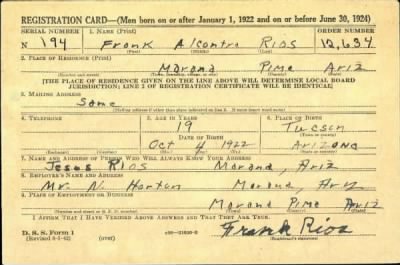 REGISTRATION CARD—(Men born on or after January 1, 1922 and on or before June 30, 1924)
SERIAL NUMBER 1. NAME (Print) ORDER NUMBER
N 194 Frank Alcantra Rios 12,634
(First) (Middle) (Last)
2. PLACE OF RESIDENCE (Print)
Marana Pima Ariz
[THE PLACE OF RESIDENCE GIVEN ON THE LINE ABOVE WILL DETERMINE LOCAL BOARD
JURISDICTION; LINE 2 OF REGISTRATION CERTIFICATE WILL BE IDENTICAL]
3. MAILING ADDRESS
Same
4. TELEPHONE 5. AGE IN YEARS 6. PLACE OF BIRTH
19 Tucson
DATE OF BIRTH
Oct 4 1922 Arizona
7. NAME AND ADDRESS OF PERSON WHO WILL ALWAYS KNOW YOUR ADDRESS
Jesus Rios Marana, Ariz
8. EMPLOYER'S NAME AND ADDRESS
Mr. N. Horton Marana, Ariz
9. PLACE OF EMPLOYMENT OR BUSINESS
Marana Pima Ariz
I AFFIRM THAT I HAVE VERIFIED ABOVE ANSWERS AND THAT THEY ARE TRUE.
D. S. S. Form 1 Frank Rios
(over) (Registrant's signature)